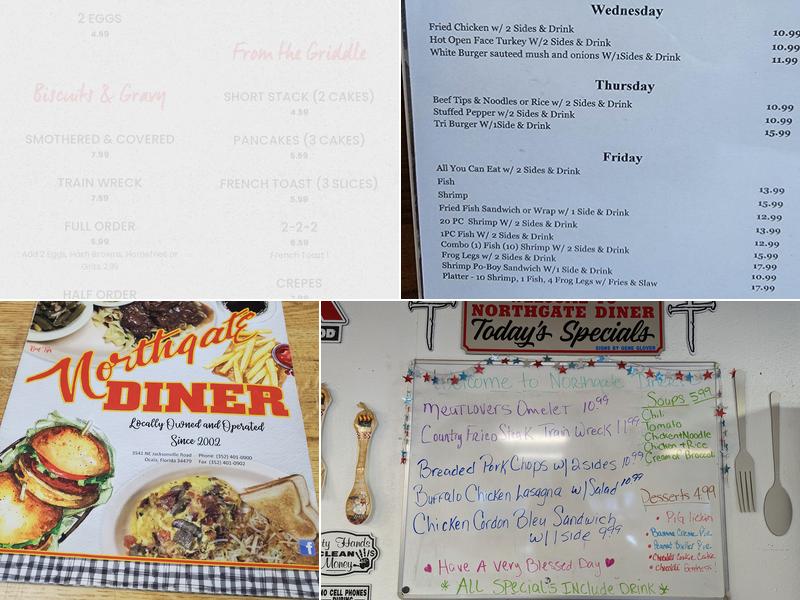 2 EGGS
4.69
Biscuits & Gravy
SMOTHERED & COVERED
7.99
TRAIN WRECK
7.59
FULL ORDER
5.99
Add 2 Eggs, Hash Browns, Homefries or
Grits 2.99
HALF ORDER
From the Griddle
SHORT STACK (2 CAKES)
4.59
PANCAKES (3 CAKES)
5.59
FRENCH TOAST (3 SLICES)
5.99
2-2-2
6.59
French Toast
CREPES
Wednesday
Fried Chicken w/ 2 Sides & Drink 10.99
Hot Open Face Turkey W/2 Sides & Drink 10.99
White Burger sauteed mush and onions W/1Sides & Drink 11.99
Thursday
Beef Tips & Noodles or Rice w/ 2 Sides & Drink 10.99
Stuffed Pepper w/2 Sides & Drink 10.99
Tri Burger W/1Side & Drink 15.99
Friday
All You Can Eat w/ 2 Sides & Drink
Fish 13.99
Shrimp 15.99
Fried Fish Sandwich or Wrap w/ 1 Side & Drink 12.99
20 PC Shrimp W/ 2 Sides & Drink 13.99
1PC Fish W/ 2 Sides & Drink 12.99
Combo (1) Fish (10) Shrimp W/ 2 Sides & Drink 15.99
Frog Legs w/ 2 Sides & Drink 17.99
Shrimp Po-Boy Sandwich W/1 Side & Drink 10.99
Platter - 10 Shrimp, 1 Fish, 4 Frog Legs w/ Fries & Slaw 17.99
Beef Tips
Northgate
DINER
Locally Owned and Operated
Since 2002
3541 NE Jacksonville Road Phone (352) 401-0900
Ocala, Florida 34479 Fax (352) 401-0902
f
NORTHGATE DINER
Today's Specials
SIGNS BY GENE GLOVER
Welcome to Northgate Diner
Meatlovers Omelet 10.99
Country Fried Steak Train Wreck 11.99
Breaded Pork Chops w/2 sides 10.99
Buffalo Chicken Lasagna w/ Salad 10.99
Chicken Cordon Bleu Sandwich
w/1 side 9.99
Have A Very Blessed Day
* ALL Special's Include Drink *
Soups 5.99
Chili
Tomato
Chicken + Noodle
Chicken + Rice
Cream of Broccoli
Desserts 4.99
• Pig lickin
• Banana Creme Pie
• Peanut Butter Pie
• Chocolate Cookie Cake
• Chocolate
ty Hands
CLEAN
Money
NO CELL PHONES
DURING